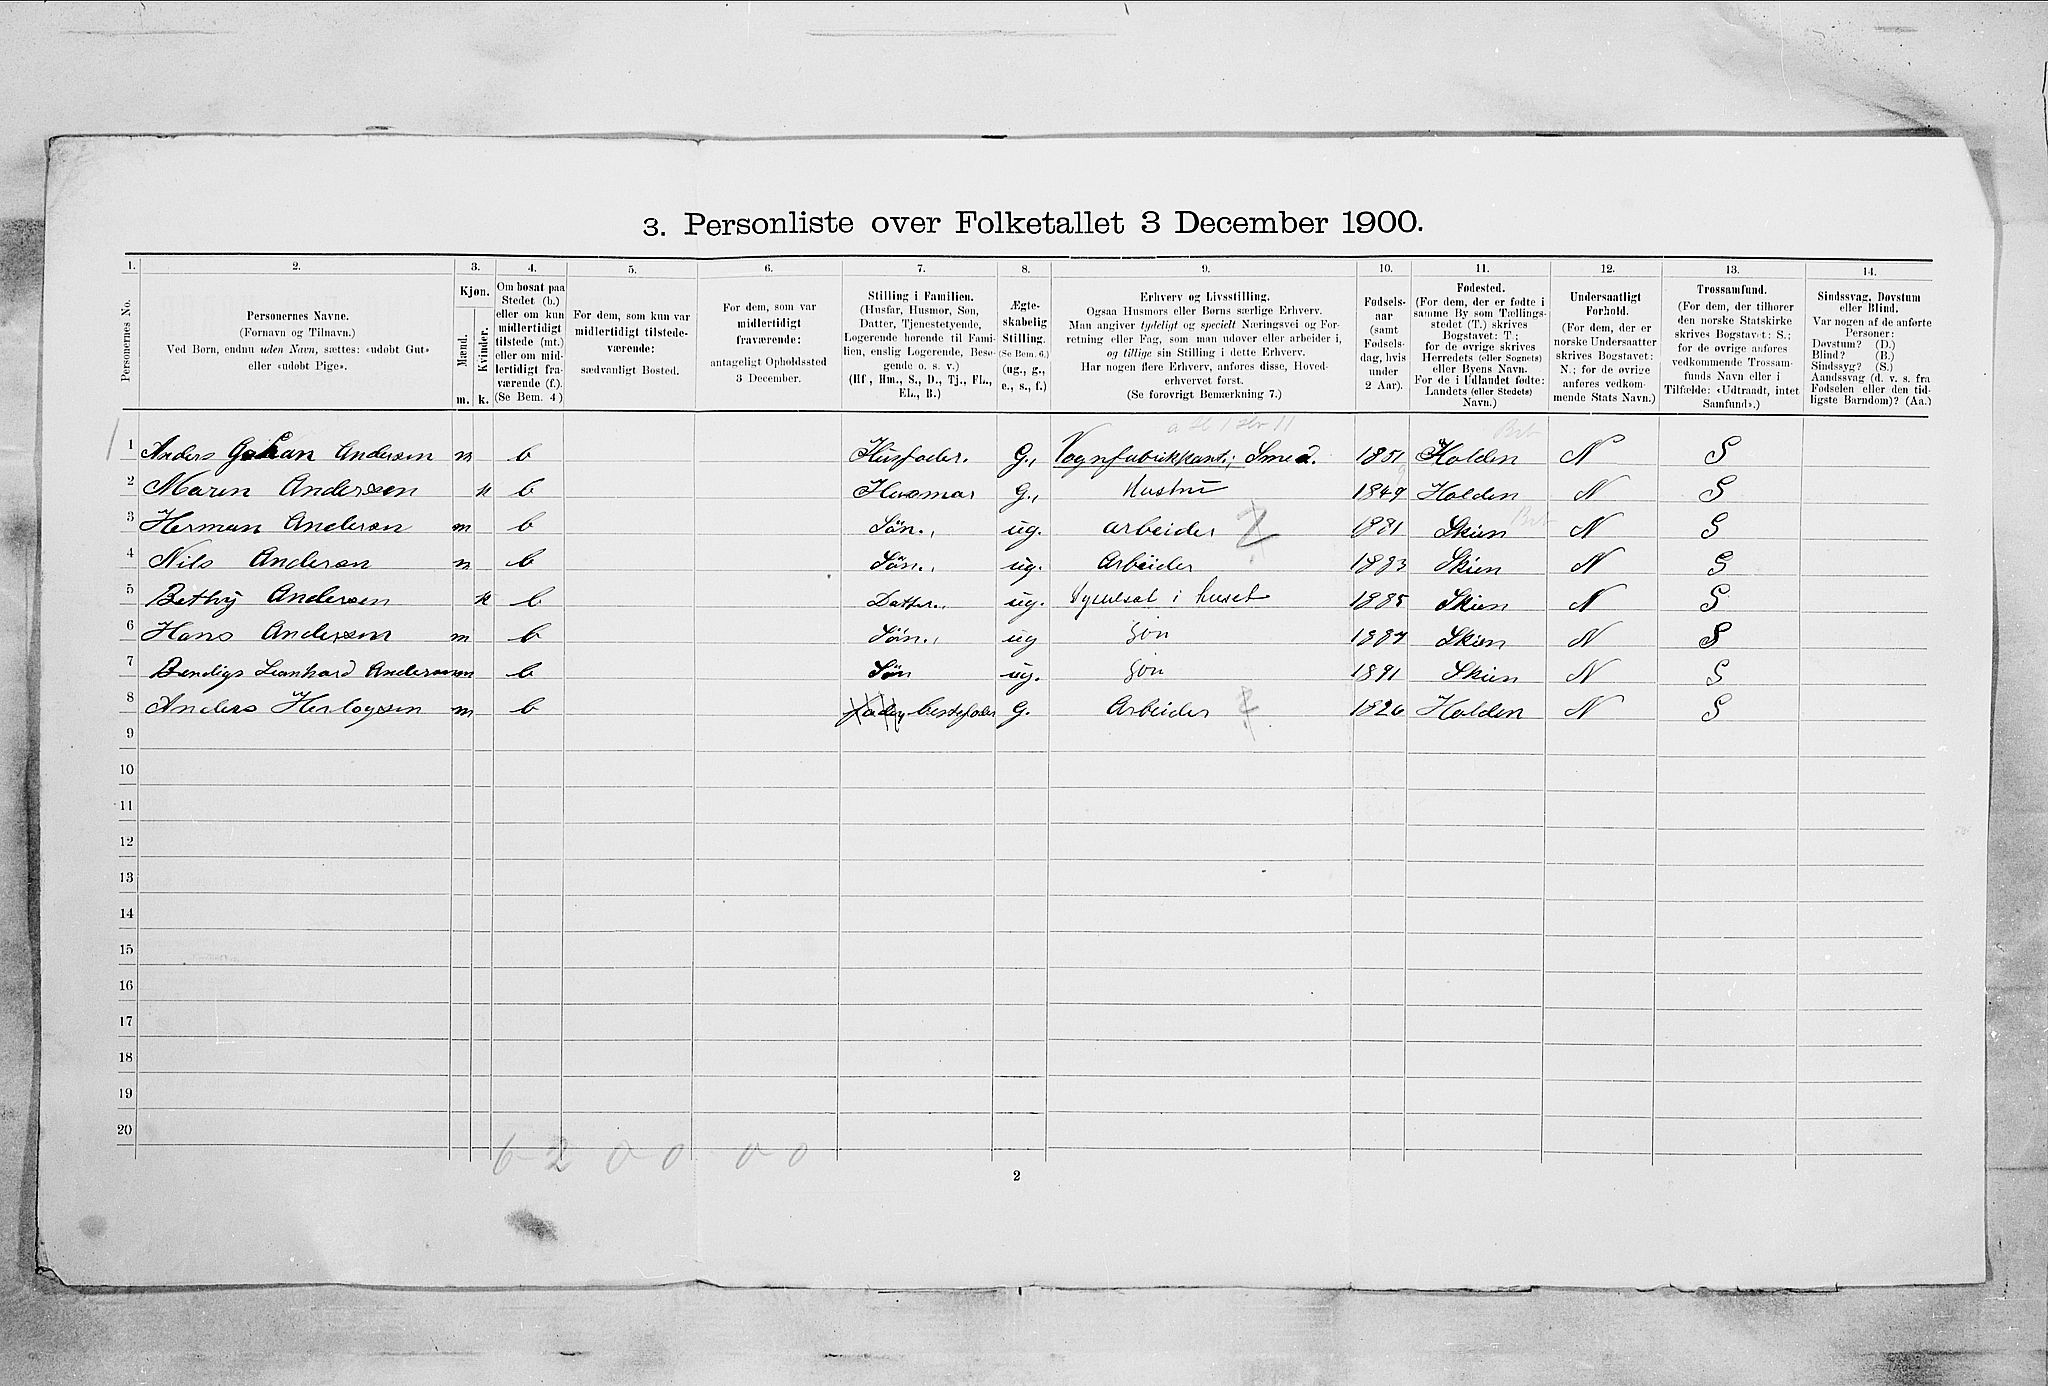 3. Personliste over Folketallet 3 December 1900.
1. 2. 3. 4. 5. 6. 7. 8. 9. 10. 11. 12. 13. 14.
Personernes No.
Personernes Navne.
(Fornavn og Tilnavn.)
Ved Børn, endnu uden Navn, sættes: «udøbt Gut»
eller «udøbt Pige».
Kjøn.
Mænd.
Kvinder.
m. k.
Om bosat paa
Stedet (b.)
eller om kun
midlertidigt
tilstede (mt.)
eller om mid-
lertidigt fra-
værende (f.).
(Se Bem. 4)
For dem, som kun var
midlertidigt tilstede-
værende:
sædvanligt Bosted.
For dem, som var
midlertidigt
fraværende:
antageligt Opholdssted
3 December.
Stilling i Familien.
(Husfar, Husmor, Søn,
Datter, Tjenestetyende,
Logerende hørende til Fami-
lien, enslig Logerende, Besø-
gende o. s. v.)
(Hf., Hm., S., D., Tj., FL.,
EL., B.)
Ægte-
skabelig
Stilling.
(Se Bem. 6.)
(ug., g.,
e., s., f.)
Erhverv og Livsstilling.
Ogsaa Husmors eller Børns særlige Erhverv.
Man angiver tydeligt og specielt Næringsvei og For-
retning eller Fag, som man udøver eller arbeider i,
og tillige sin Stilling i dette Erhverv.
Har nogen flere Erhverv, anføres disse, Hoved-
erhvervet først.
(Se forøvrigt Bemærkning 7.)
Fødsels-
aar
(samt
Fødsels-
dag, hvis
under
2 Aar).
Fødested.
(For dem, der er fødte i
samme By som Tællings-
stedet (T.) skrives
Bogstavet: T;
for de øvrige skrives
Herredets (eller Sognets)
eller Byens Navn.
For de i Udlandet fødte:
Landets (eller Stedets)
Navn.)
Undersaatligt
Forhold.
(For dem, der er
norske Undersaatter
skrives Bogstavet:
N.; for de øvrige
anføres vedkom-
mende Stats Navn.)
Trossamfund.
(For dem, der tilhører
den norske Statskirke
skrives Bogstavet: S.;
for de øvrige anføres
vedkommende Trossam-
funds Navn eller i
Tilfælde: «Udtraadt, intet
Samfund».)
Sindssvag, Døvstum
eller Blind.
Var nogen af de anførte
Personer:
Døvstum? (D.)
Blind? (B.)
Sindssyg? (S.)
Aandssvag (d. v. s. fra
Fødselen eller den tid-
ligste Barndom)? (Aa.)
1 Anders Johan Anderssen m b Husfader. G., Vognfabrikkant; Smed. 1851 Holden N S
2 Maren Anderssen k b Husmor G., Hustru 1849 Holden N S
3 Herman Andersen m b Sön., ug. arbeider 1881 Skien N S
4 Nils Andersen m b Sön., ug. Arbeider 1883 Skien N S
5 Bethy Andersen k b Datter., ug. Syerske i huset 1885 Skien N S
6 Hans Anderssen m b Sön., ug Søn 1887 Skien N S
7 Bendigs Leonhard Anderssen m b Sön ug. Søn 1891 Skien N S
8 Anders Herlogsen m b fader, bestefader G. Arbeider 1826 Holden N S
9
10
11
12
13
14
15
16
17
18
19
20
6 2 0 0 0 0
2